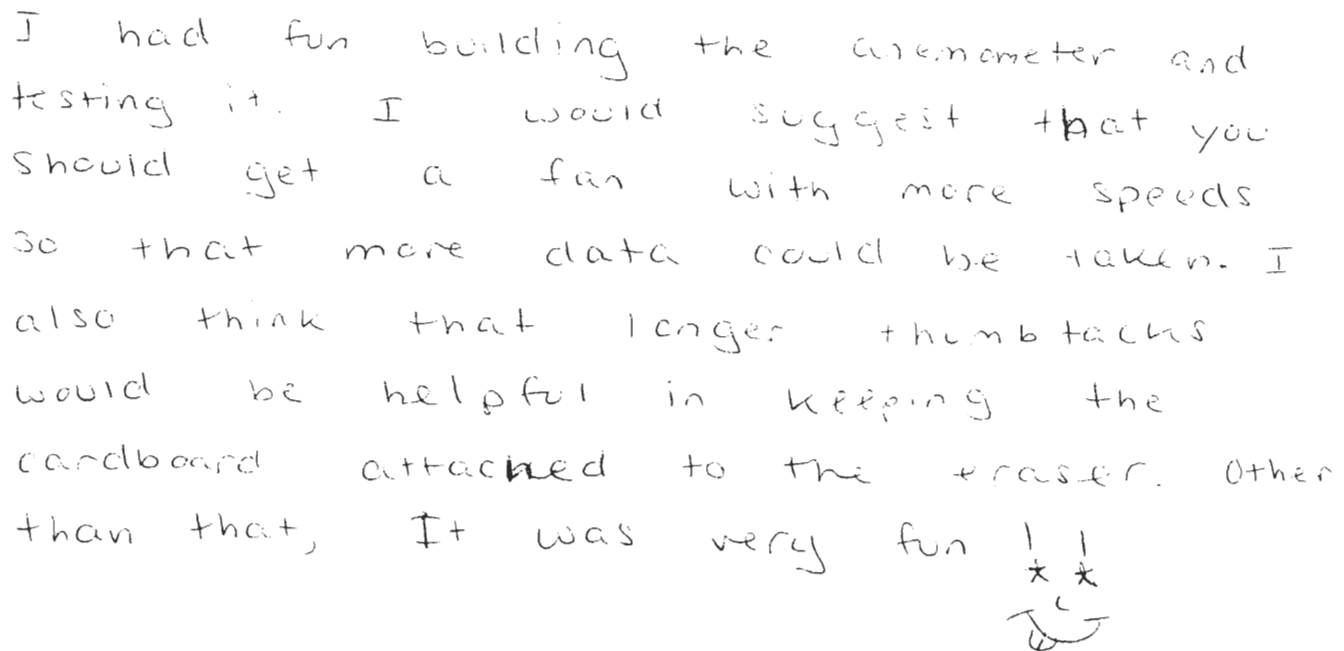 I had fun building the anemometer and
testing it. I would suggest that you
should get a fan with more speeds
so that more data could be taken. I
also think that longer thumbtacks
would be helpful in keeping the
cardboard attached to the eraser. Other
than that, It was very fun !!